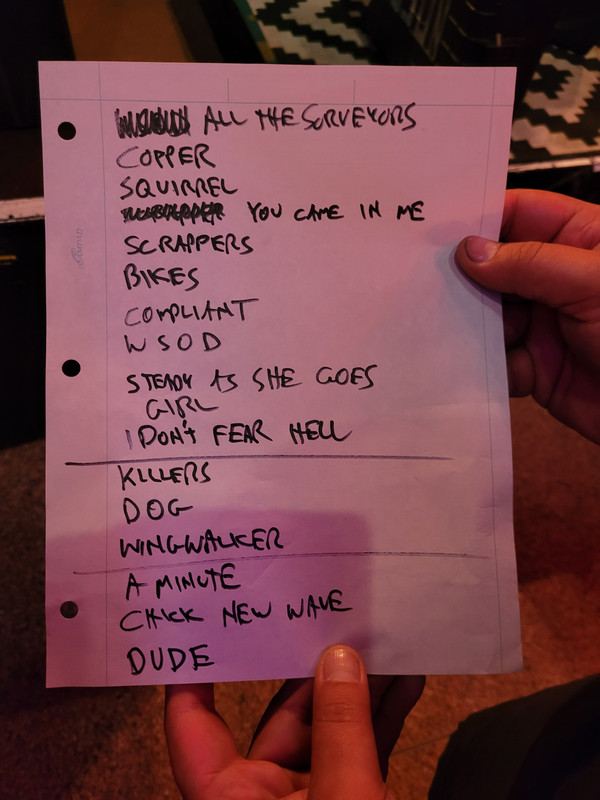 ALL THE SURVEYORS
COPPER
SQUIRREL
YOU CAME IN ME
SCRAPPERS
BIKES
COMPLIANT
WSOD
STEADY AS SHE GOES
GIRL
I DON'T FEAR HELL
KILLERS
DOG
WINGWALKER
A MINUTE
CHICK NEW WAVE
DUDE